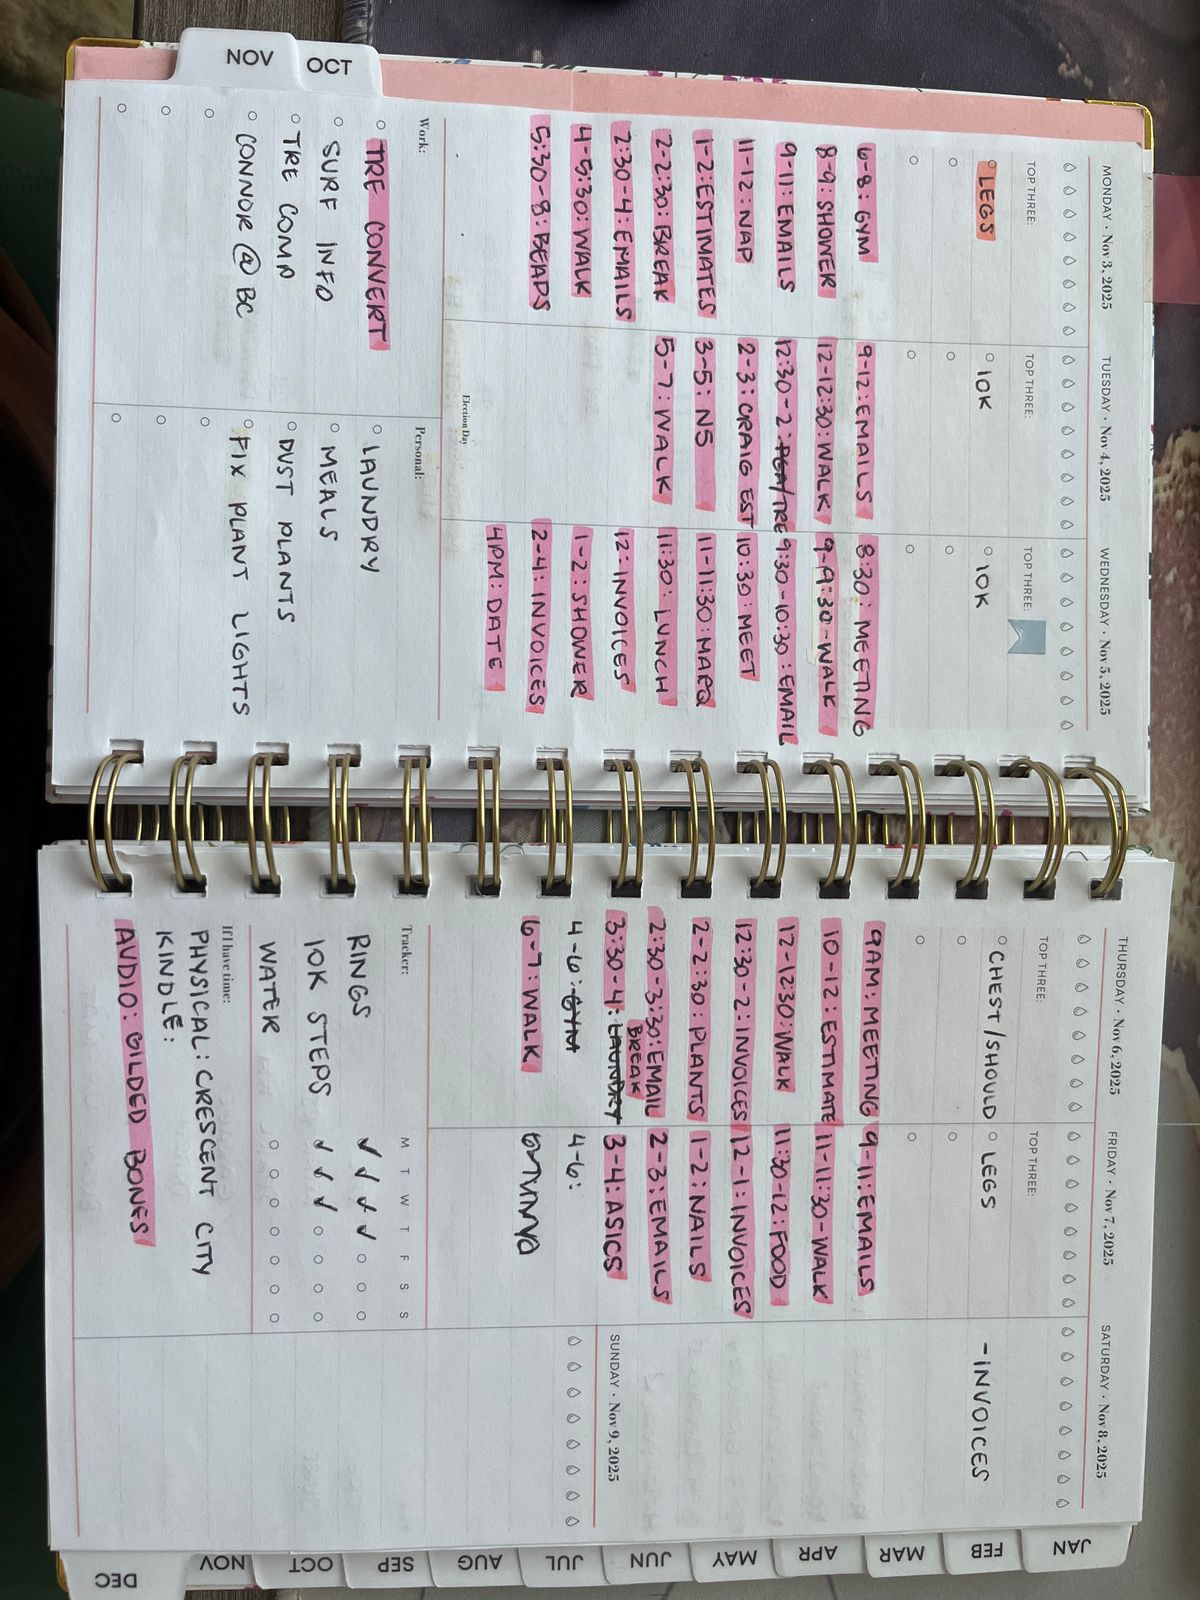 NOV
OCT
MONDAY • Nov 3, 2025
TOP THREE:
LEGS
6-8: GYM
8-9: SHOWER
9-11: EMAILS
11-12: NAP
1-2: ESTIMATES
2-2:30: BREAK
2:30-4: EMAILS
4-5:30: WALK
5:30-8: BEADS
TUESDAY • Nov 4, 2025
TOP THREE:
10K
9-12: EMAILS
12-12:30: WALK
12:30-2: PGA/TRE
2-3: CRAIG EST
3-5: N5
5-7: WALK
Election Day
WEDNESDAY • Nov 5, 2025
TOP THREE:
10K
8:30: MEETING
9-9:30-WALK
9:30-10:30: EMAIL
10:30: MEET
11-11:30: MARQ
11:30: LUNCH
12: INVOICES
1-2: SHOWER
2-4: INVOICES
4PM: DATE
Work:
TRE CONVERT
SURF INFO
TRE COMP
CONNOR @ BC
Personal:
LAUNDRY
MEALS
DUST PLANTS
FIX PLANT LIGHTS
THURSDAY • Nov 6, 2025
TOP THREE:
CHEST/SHOULD
9AM: MEETING
10-12: ESTIMATE
12-12:30: WALK
12:30-2: INVOICES
2-2:30: PLANTS
2:30-3:30: EMAIL
BREAK
3:30-4: LAUNDRY
4-6: GYM
6-7: WALK
FRIDAY • Nov 7, 2025
TOP THREE:
LEGS
9-11: EMAILS
11-11:30-WALK
11:30-12: FOOD
12-1: INVOICES
1-2: NAILS
2-3: EMAILS
3-4: ASICS
4-6:
SATURDAY • Nov 8, 2025
-INVOICES
SUNDAY • Nov 9, 2025
Tracker:
M T W T F S S
RINGS ✓ ✓ ✓ ✓
10K STEPS ✓ ✓ ✓
WATER
If I have time:
PHYSICAL: CRESCENT CITY
KINDLE:
AUDIO: GILDED BONES
JAN
FEB
MAR
APR
MAY
JUN
JUL
AUG
SEP
OCT
NOV
DEC